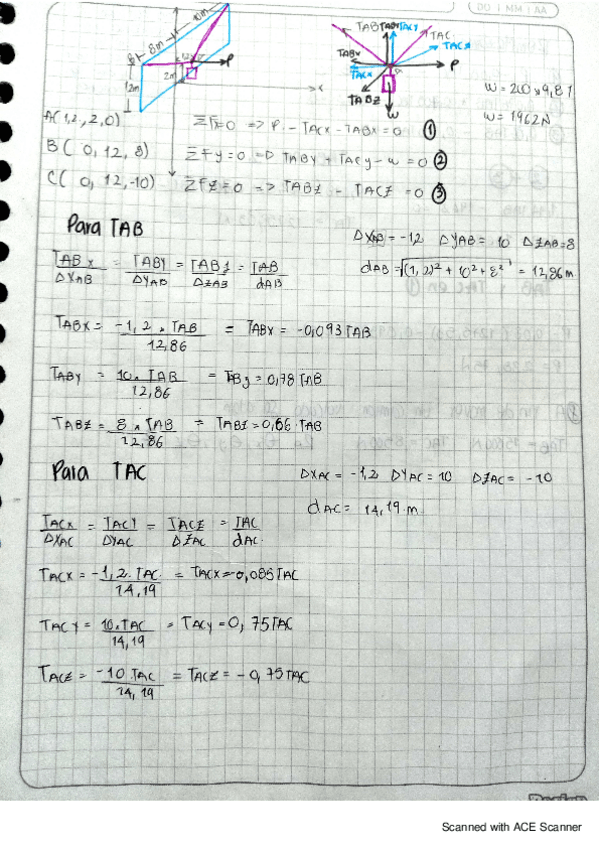 DD | MM | AA
8m
10m
12m
2m
P
TAB
TABY
TACY
TAC
TABx
TACx
TACz
P
TABZ
W
W = 200 x 9,81
W = 1962N
A(1,2, 2, 0)
ΣFx=0 => P - TACx - TABx = 0 ①
B( 0, 12, 8)
ΣFy=0 => TABy + TACy - W = 0 ②
C( 0, 12, -10)
ΣFz=0 => TABz - TACz = 0 ③
Para TAB
ΔXAB = -1,2 ΔYAB = 10 ΔZAB = 8
TABx/ΔXAB = TABY/ΔYAB = TABz/ΔZAB = TAB/dAB
dAB = √(1,2)² + 10² + 8² = 12,86 m
TABx = -1,2 . TAB/12,86 = TABx = -0,093 TAB
TABy = 10 . TAB/12,86 = TABy = 0,78 TAB
TABz = 8 x TAB/12,86 = TABz = 0,66 . TAB
Para TAC
ΔXAC = -1,2 ΔYAC = 10 ΔZAC = -10
dAC = 14,19 m
TACx/ΔXAC = TACY/ΔYAC = TACZ/ΔZAC = TAC/dAC.
TACx = -1,2 . TAC/14,19 = TACx = -0,085 TAC
TACY = 10 . TAC/14,19 = TACY = 0,75 TAC
TACZ = -10 . TAC/14,19 = TACZ = -0,75 TAC
Scanned with ACE Scanner